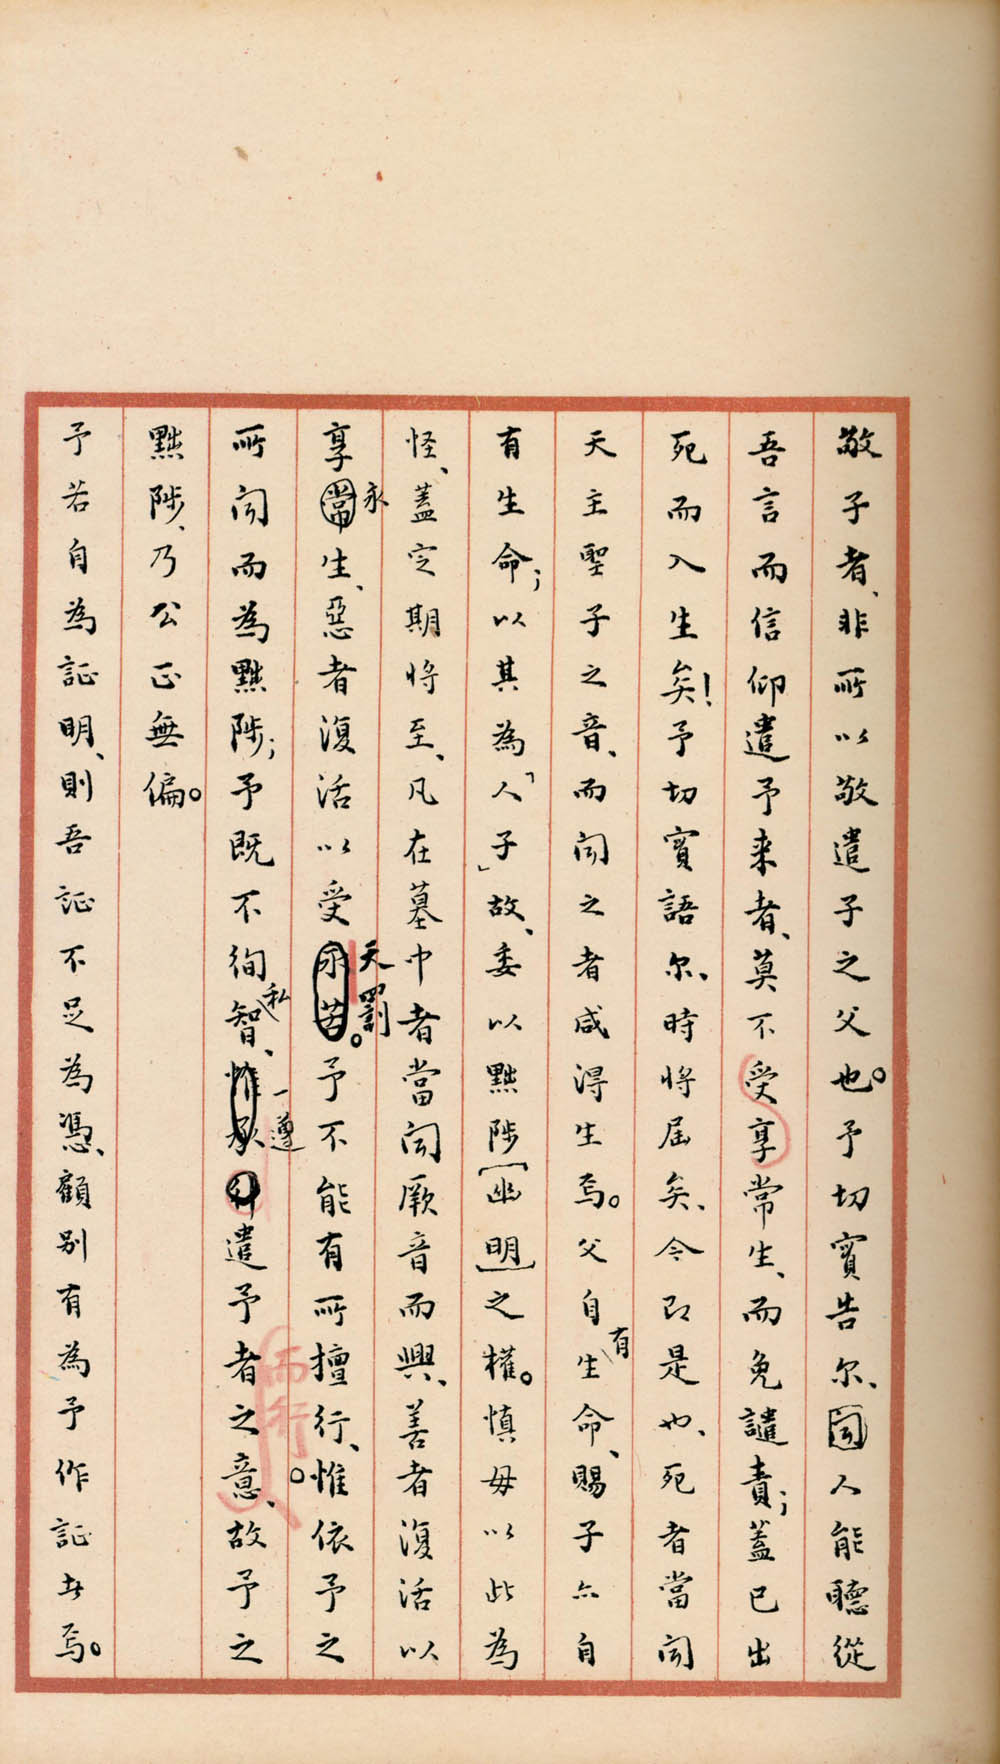 敬子者、非所以敬遣子之父也。予切實告尔、聞人能聽從
吾言而信仰遣予来者、莫不受享常生、而免譴責；蓋已出
死而入生矣！予切實語尔、時將屆矣、今即是也、死者當聞
天主聖子之音、而聞之者咸得生焉。父自有生命、賜子亦自
有生命；以其為「人子」故、委以黜陟［幽明］之權。慎毋以此為
怪、蓋定期將至、凡在墓中者當聞厥音而興、善者復活以
享常永生、惡者復活以受永苦天罰。予不能有所擅行、惟依予之
所聞而為黜陟；予既不徇私智、惟承一遵遣予者之意、而行。故予之
黜陟、乃公正無偏。
予若自為証明、則吾証不足為憑、顧別有為予作証者焉。